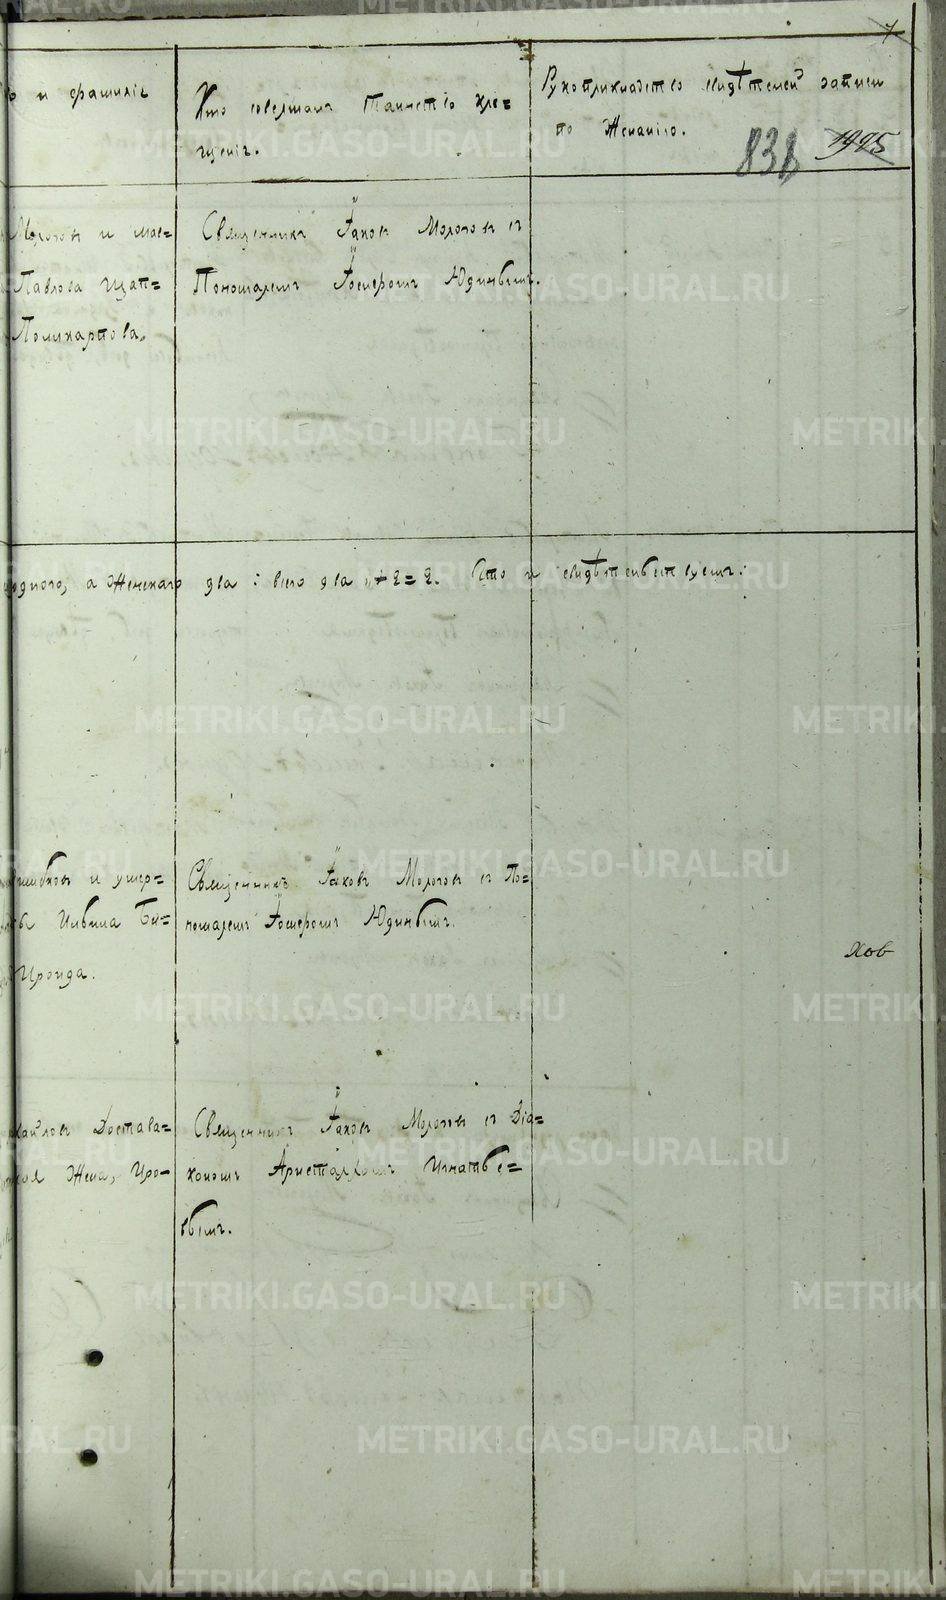 7
и фамилія
Кто совершалъ таинство кре=
щенія.
Рукоприкладство свидѣтелей записи
по желанію.
838 1925
Молоковъ и мас=
Павлова Щап=
Поликарпова.
Священникъ Іаковъ Молоковъ съ
Пономаремъ Іосифомъ Юдинымъ.
одного, а женскаго два: всего два 2=2. Что и свидѣтельствуемъ:
и умер=
Ильина Би=
Ироида.
Священникъ Іаковъ Молоковъ съ По=
номаремъ Іосифомъ Юдинымъ.
хов
Достава=
жена, Про=
Священникъ Іаковъ Молоковъ съ Діа=
кономъ Аристархомъ Игнатье=
вымъ.
METRIKI.GASO-URAL.RU